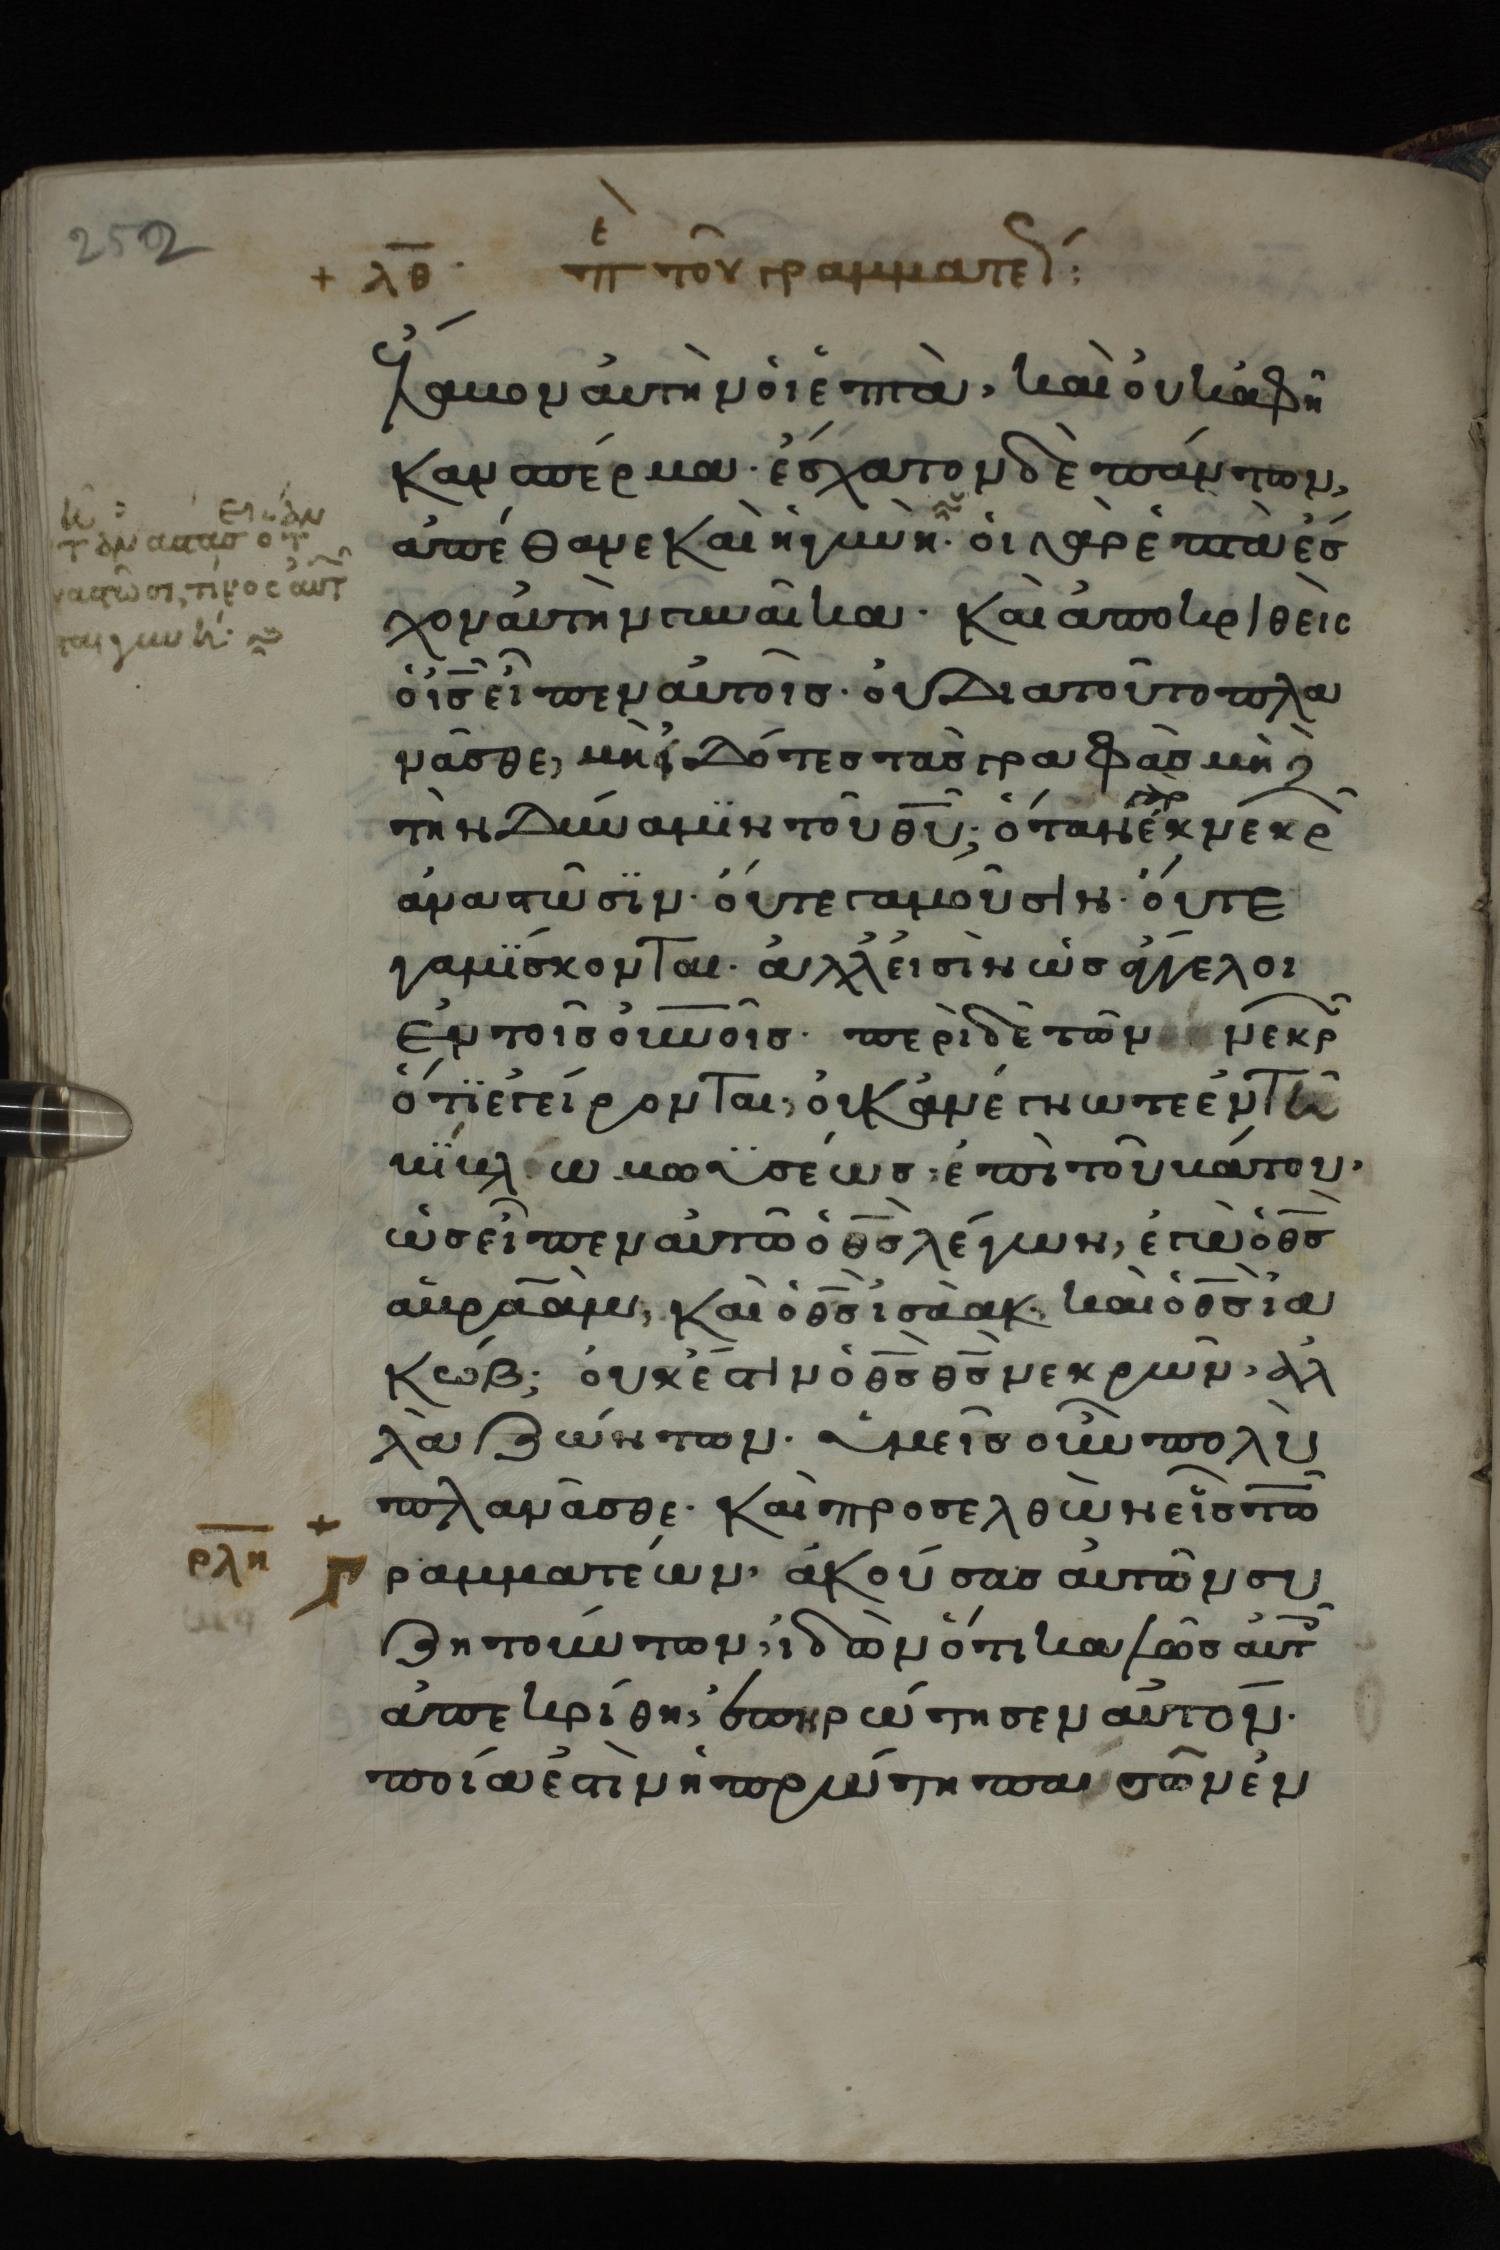 252
+ λθ· πε τοῦ γραμματέως:
ἔλαβον αὐτὴν οἱ ἑπτὰ, καὶ οὐκ ἀφῆ
καν σπέρμα· ἔσχατον δὲ πάντων,
ἀπέθανε καὶ ἡ γυνὴ· οἱ γὰρ ἑπτὰ ἔσ
χον αὐτὴν γυναῖκα· καὶ ἀποκριθεὶς
ὁ ις εἶπεν αὐτοῖς· οὐ διατοῦτο πλα
νᾶσθε, μὴ εἰδότες τὰς γραφὰς μὴδὲ
τὴν δύναμϊν τοῦ θυ; ὅταν γὰρ ἐκ νεκρῶ
ἀναστῶσϊν· οὔτε γαμοῦσιν· οὔτε
γαμΐσκονται· ἀλλ' εἰσὶν ὡς ἄγγελοι
ἐν τοῖς οὐνοῖς· περὶ δὲ τῶν νεκρῶ
ὅτϊ ἐγείρονται, οὐκ ἀνέγνωτε ἐν τῶ
βϊβλίω μωϋσέως· ἐπὶ τοῦ βάτου,
ὡς εἶπεν αὐτῶ ὁ θς λέγων, ἐγὼ ὁ θς
ἀβραὰμ, καὶ ὁ θς ἰσαὰκ, καὶ ὁ θς ἰα
κώβ; οὐκ ἔστιν ὁ θς θς νεκρῶν, ἀλ
λὰ ζώντων· ὑμεῖς οὖν πολὺ
πλανᾶσθε· καὶ προσελθὼν εἷς τῶ
ρλη + γραμματέων, ἀκούσας αὐτῶν συ
ζητούντων, ἰδὼν ὅτι καλῶς αὐτ
ἀπεκρίθη, ἐπηρώτησεν αὐτόν·
ποία ἐστὶν ἡ πρώτη πασῶν ἐν
τῆ οὖν ἀναστάσει ὅταν
ἀναστῶσι, τίνος αὐτ
ἔσται γυνή·